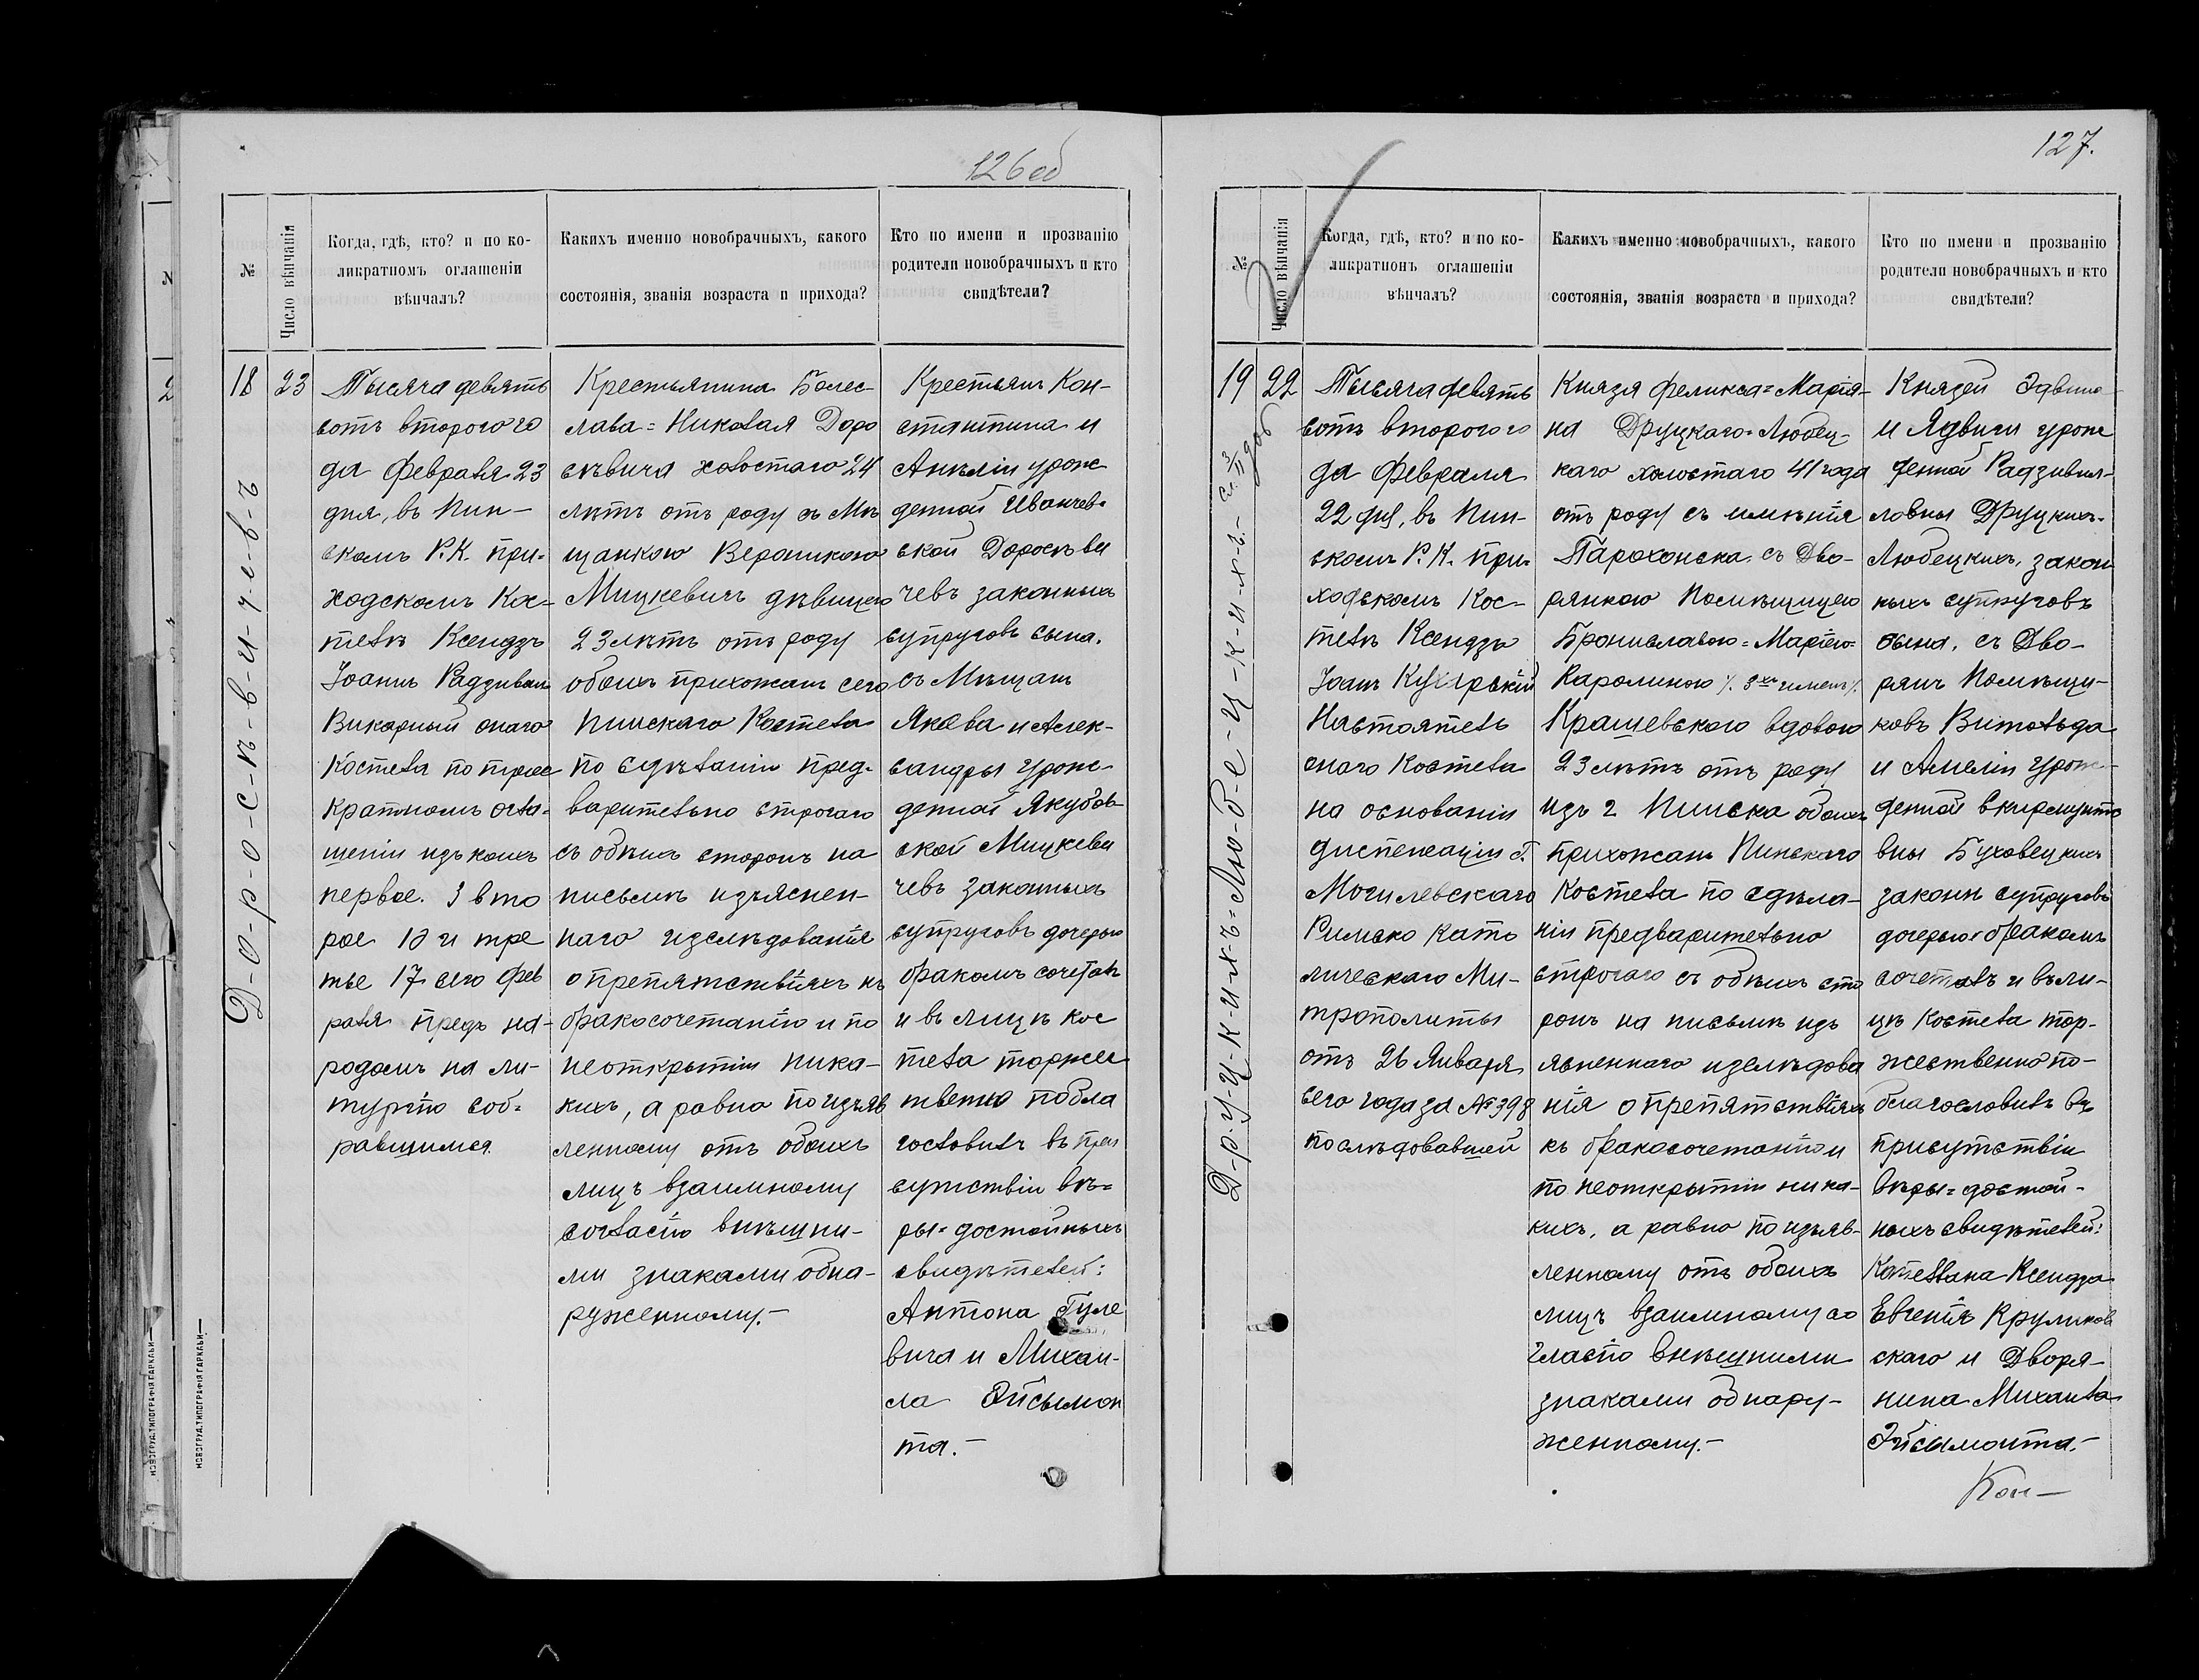 126 об
№
Число вѣнчанія
Когда, гдѣ, кто? и по ко-
ликратномъ оглашеніи
вѣнчалъ?
Какихъ именно новобрачныхъ, какого
состоянія, званія возраста и прихода?
Кто по имени и прозванію
родители новобрачныхъ и кто
свидѣтели?
18
23
Д-о-р-о-с-ѣ-в-и-ч-е-в-ъ
Тысяча девять
сотъ второго го
да Февраля 23
дня, въ Пин-
скомъ Р.К. при-
ходскомъ Кос-
телѣ Ксендзъ
Іоаннъ Радзивил
Викарный онаго
Костела по трое
кратномъ огла-
шеніи изъ коихъ
первое. 3 вто
рое 10 и тре
тье 17 сего фев
раля предъ на-
родомъ на ли-
тургію соб-
равшимся.
Крестьянина Болес-
лава=Николая Доро
сѣвича холостаго 24
лѣтъ отъ роду съ Мѣ
щанкою Вероникою
Мицкевичъ дѣвицею
23 лѣтъ отъ роду
обоихъ прихожанъ сего
Пинскаго Костела
по сдѣланіи пред-
варительно строгаго
съ обѣихъ сторонъ на
письмѣ изъяснен-
наго изслѣдованія
о препятствіяхъ къ
бракосочетанію и по
неоткрытіи ника-
кихъ, а равно по изъяв
ленному отъ обоихъ
лицъ взаимному
согласію внѣшни-
ми знаками обна-
руженному.-
Крестьянъ Кон-
стантина и
Анѣліи урож
денной Иванчев-
ской Доросѣви
чевъ законныхъ
супруговъ сына.
съ Мѣщанъ
Якова и Алек-
сандры урож-
денной Якубов-
ской Мицкеви
чевъ законныхъ
супруговъ дочерью
бракомъ сочеталъ
и въ лицѣ кос
тела торжес
твенно побла
гословилъ въ при
сутствіи вѣ-
ры=достойныхъ
свидѣтелей:
Антона Гуле
вича и Михаи-
ла Эйсымон
та.-
НОВОГРУД. ТИПОГРАФІЯ ГАРКАВИ
127.
№
Число вѣнчанія
Когда, гдѣ, кто? и по ко-
ликратномъ оглашеніи
вѣнчалъ?
Какихъ именно новобрачныхъ, какого
состоянія, званія возраста и прихода?
Кто по имени и прозванію
родители новобрачныхъ и кто
свидѣтели?
19
22
Д-р-у-ц-к-и-х-ъ=Лю-б-е-ц-к-и-х-ъ.-
Тысяча девять
сотъ второго го
да Февраля
22 дня, въ Пин-
скомъ Р.К. при-
ходскомъ Кос-
телѣ Ксендзъ
Іоаннъ Кухарскій
Настоятель
онаго Костела
на основаніи
диспенсаціи
Могилевскаго
Римско Като
лическаго Ми-
трополиты
отъ 26 Января
сего года за № 398
послѣдовавшей
Князя Феликса=Марія-
на Друцкаго=Любец-
каго холостаго 41 года
отъ роду съ имѣнія
Парохонска. съ Дво-
рянкою Помѣщицею
Брониславою=Маріею=
Каролиною ٪ 3хъ именъ ٪
Крашевскою вдовою
23 лѣтъ отъ роду
изъ г Пинска обоихъ
прихожанъ Пинскаго
Костела по сдѣла-
ніи предварительно
строгаго съ обѣихъ сто
ронъ на письмѣ изъ
ясненнаго изслѣдова
нія о препятствіяхъ
къ бракосочетанію и
по неоткрытіи ника-
кихъ, а равно по изъяв-
ленному отъ обоихъ
лицъ взаимному со
гласію внѣшними
знаками обнару-
женному.-
Князей Эдвина
и Ядвиги урож
денной Радзивил-
ловны Друцкихъ-
Любецкихъ, закон
ныхъ супруговъ
сына, съ Дво-
рянъ Помѣщи-
ковъ Витольда
и Амеліи урож-
денной
вны Буховецкихъ
законн супруговъ
дочерью бракомъ
сочеталъ и въ ли-
цѣ Костела тор-
жественно по-
благословилъ въ
присутствіи
вѣры=достой-
ныхъ свидѣтелей:
Капеллана Ксендза
Евгенія Круликов
скаго и Дворя-
нина Михаила
Эйсымонта.-
Кон-